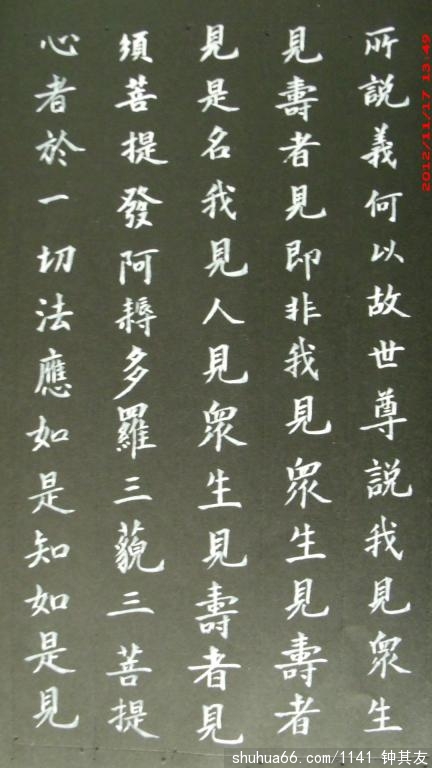 所說義何以故世尊說我見眾生
見壽者見即非我見眾生見壽者
見是名我見人見眾生見壽者見
須菩提發阿耨多羅三藐三菩提
心者於一切法應如是知如是見
2012/11/17 13:49
shuhua66.com/1141 钟其友